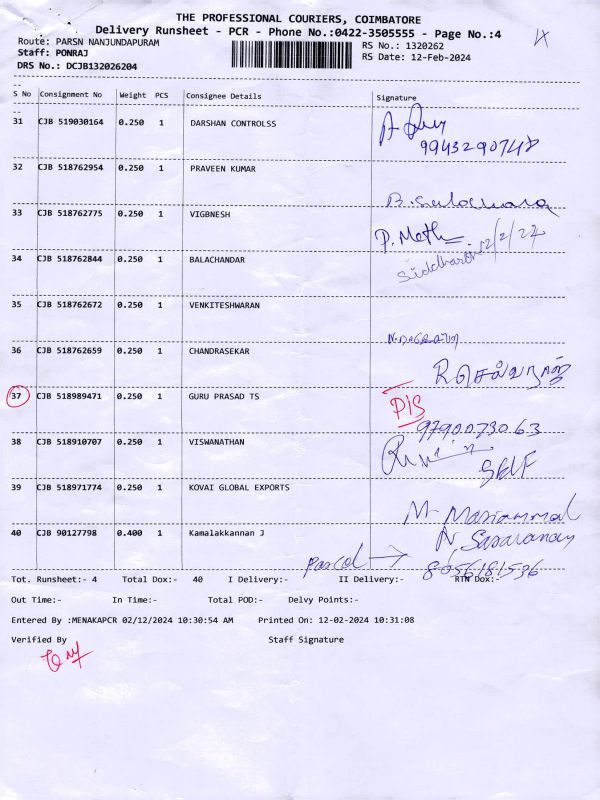 THE PROFESSIONAL COURIERS, COIMBATORE
Delivery Runsheet - PCR - Phone No.:0422-3505555 - Page No.:4
Route: PARSN NANJUNDAPURAM
RS No.: 1320262
Staff: PONRAJ
RS Date: 12-Feb-2024
DRS No.: DCJB132026204
S No Consignment No Weight PCS Consignee Details Signature
31 CJB 519030164 0.250 1 DARSHAN CONTROLSS
9943290748
32 CJB 518762954 0.250 1 PRAVEEN KUMAR
33 CJB 518762775 0.250 1 VIGBNESH
P. Meth
12/2/24
34 CJB 518762844 0.250 1 BALACHANDAR
35 CJB 518762672 0.250 1 VENKITESHWARAN
36 CJB 518762659 0.250 1 CHANDRASEKAR
37 CJB 518989471 0.250 1 GURU PRASAD TS
P/S
9790073063
38 CJB 518910707 0.250 1 VISWANATHAN
SELF
39 CJB 518971774 0.250 1 KOVAI GLOBAL EXPORTS
M. Mariammal
40 CJB 90127798 0.400 1 Kamalakkannan J
N. Sasaranan
parcel →
8056181536
Tot. Runsheet:- 4 Total Dox:- 40 I Delivery:- II Delivery:- RTN Dox:-
Out Time:- In Time:- Total POD:- Delvy Points:-
Entered By :MENAKAPCR 02/12/2024 10:30:54 AM Printed On: 12-02-2024 10:31:08
Verified By Staff Signature